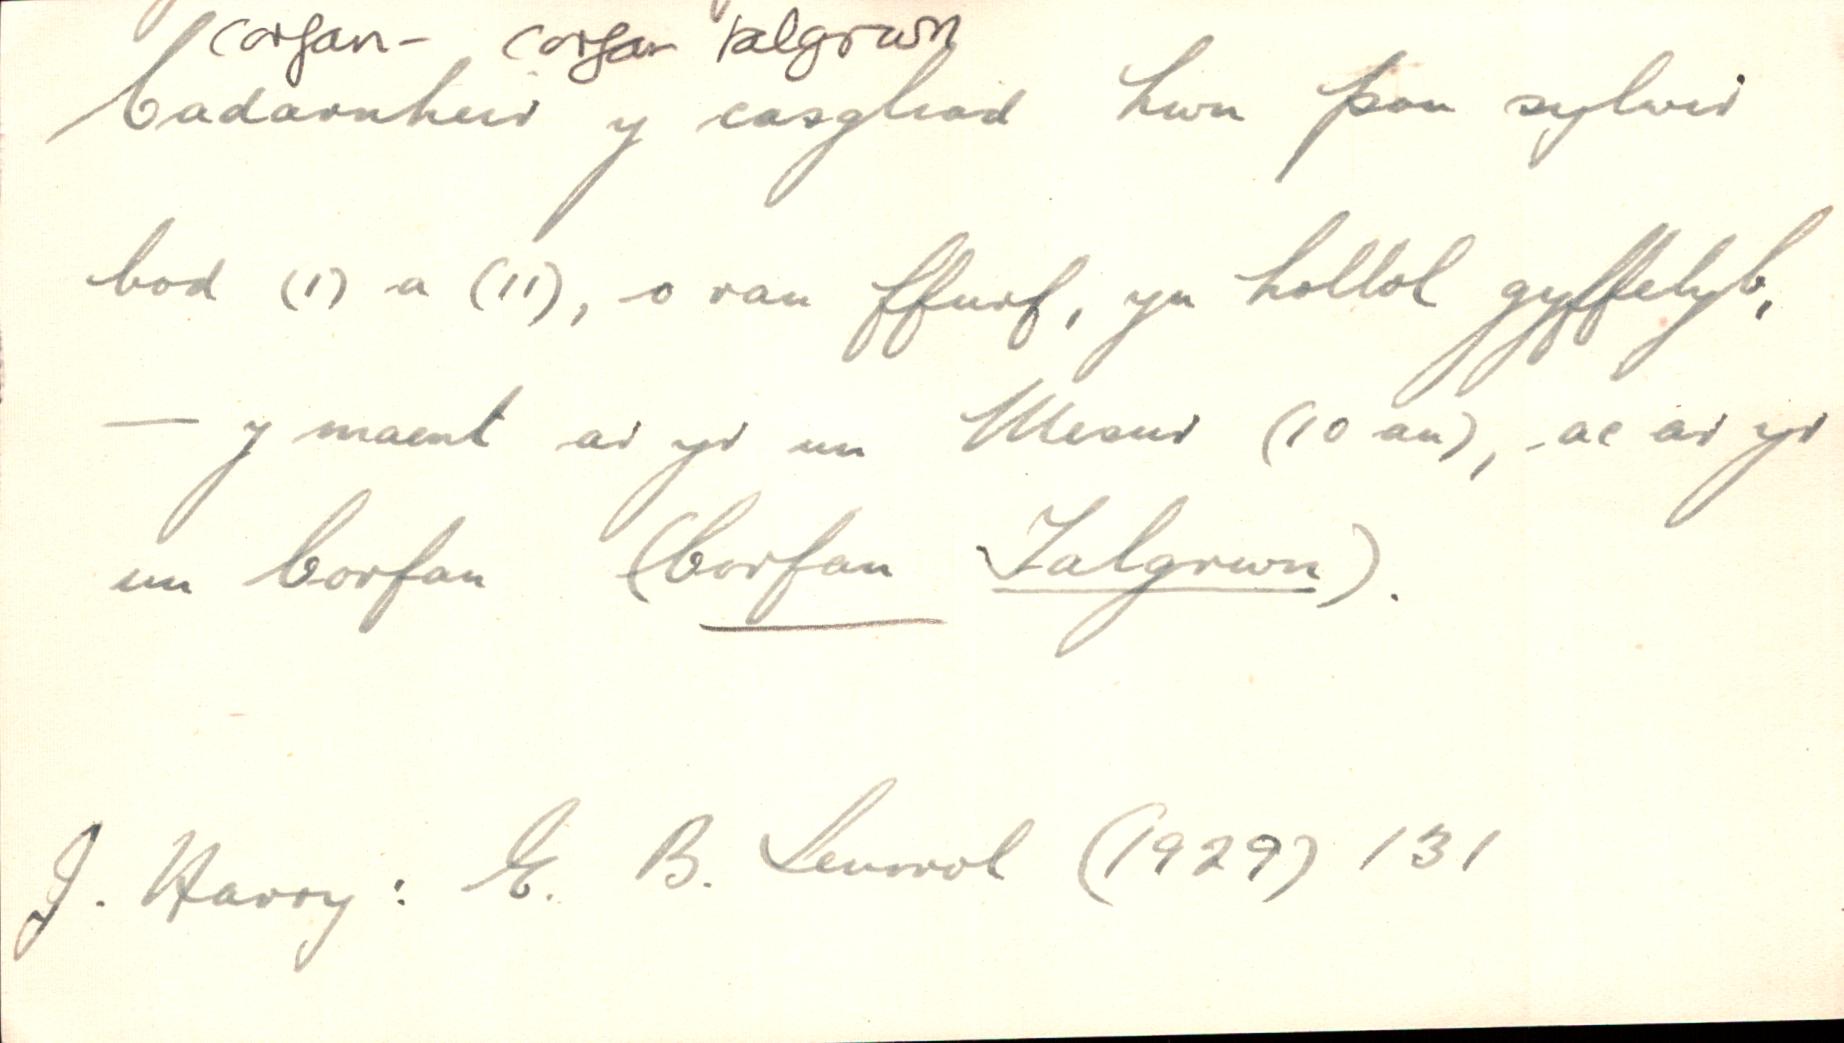 corfan- corfan talgrwn
Cadarnheir y casgliad hwn pan sylwir
bod (1) a (11), o ran ffurf, yn hollol gyffelyb,
— y maent ar yr un Mesur (10 au), ac ar yr
un Corfan (Corfan Talgrwn).
J. Harry: E. B. Leurol (1929) 131